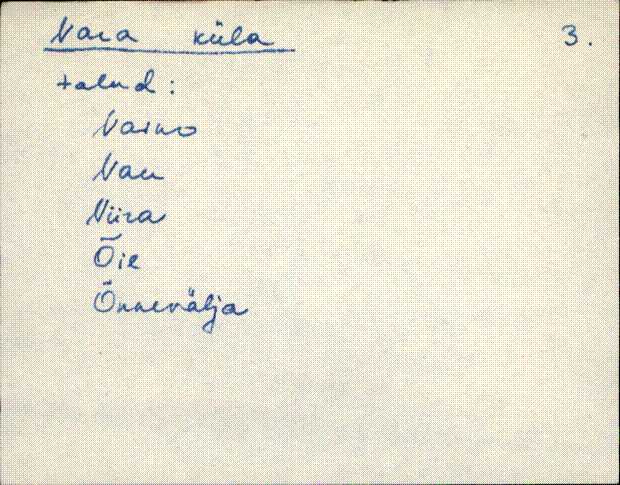 Vara küla 3.
talud:
Vaino
Viira
Õie
Õnnevälja